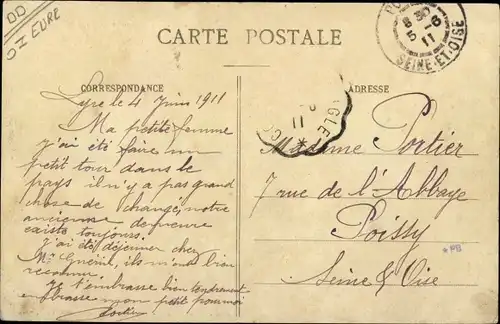 OO
EURE
CARTE POSTALE
8 30
5 - 6
11
SEINE-ET-OISE
CORRESPONDANCE
ADRESSE
Lyre le 4 Juin 1911
Ma petite femme
j'ai été faire un
petit tour dans le
pays il n'y a pas grand
chose de changé, notre
ancienne demeure
existe toujours.
J'ai été déjeuner chez
Mr ils m'ont bien
reconnu.
Je t'embrasse bien tendrement
embrasse mon petit pour moi
Portier
11
Madame Portier
7 rue de l'Abbaye
Poissy
Seine & Oise
*PB